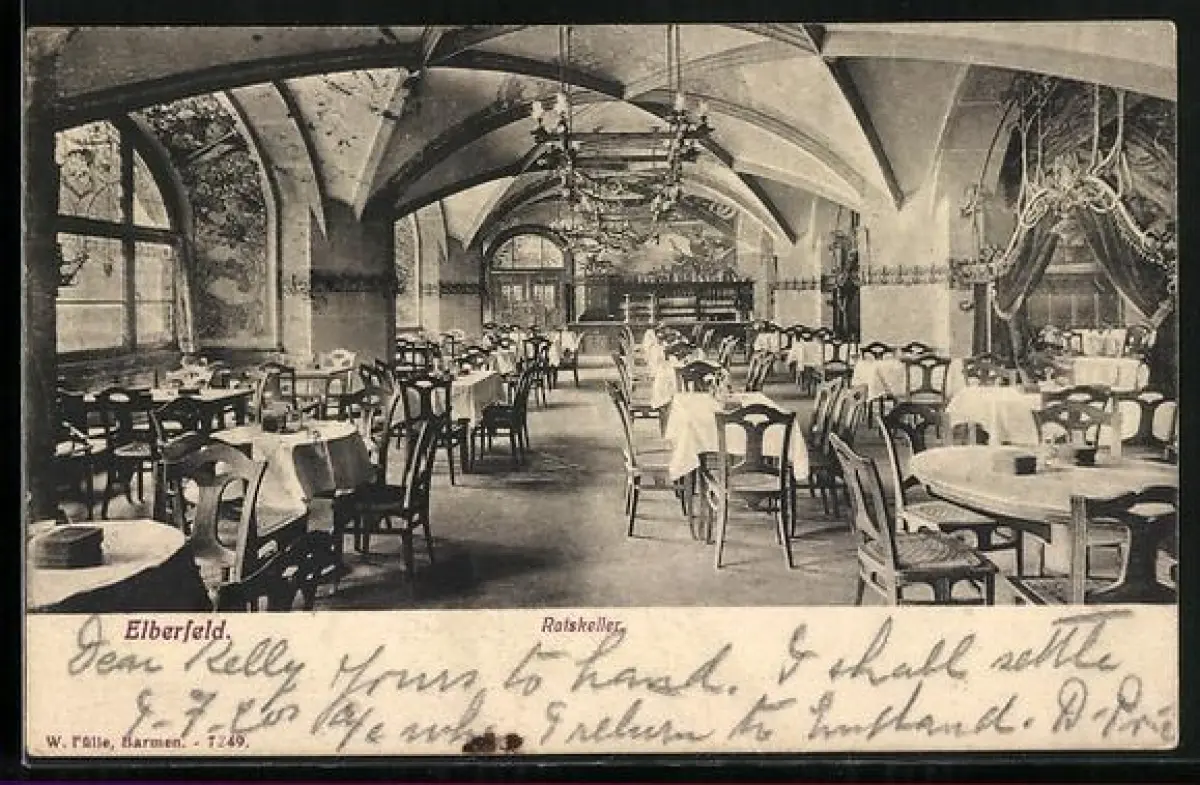 Elberfeld.
Ratskeller.
Dear Kelly Yours to hand. I shall settle
a/c when I return to England.
W. Fülle, Barmen. - 7249.